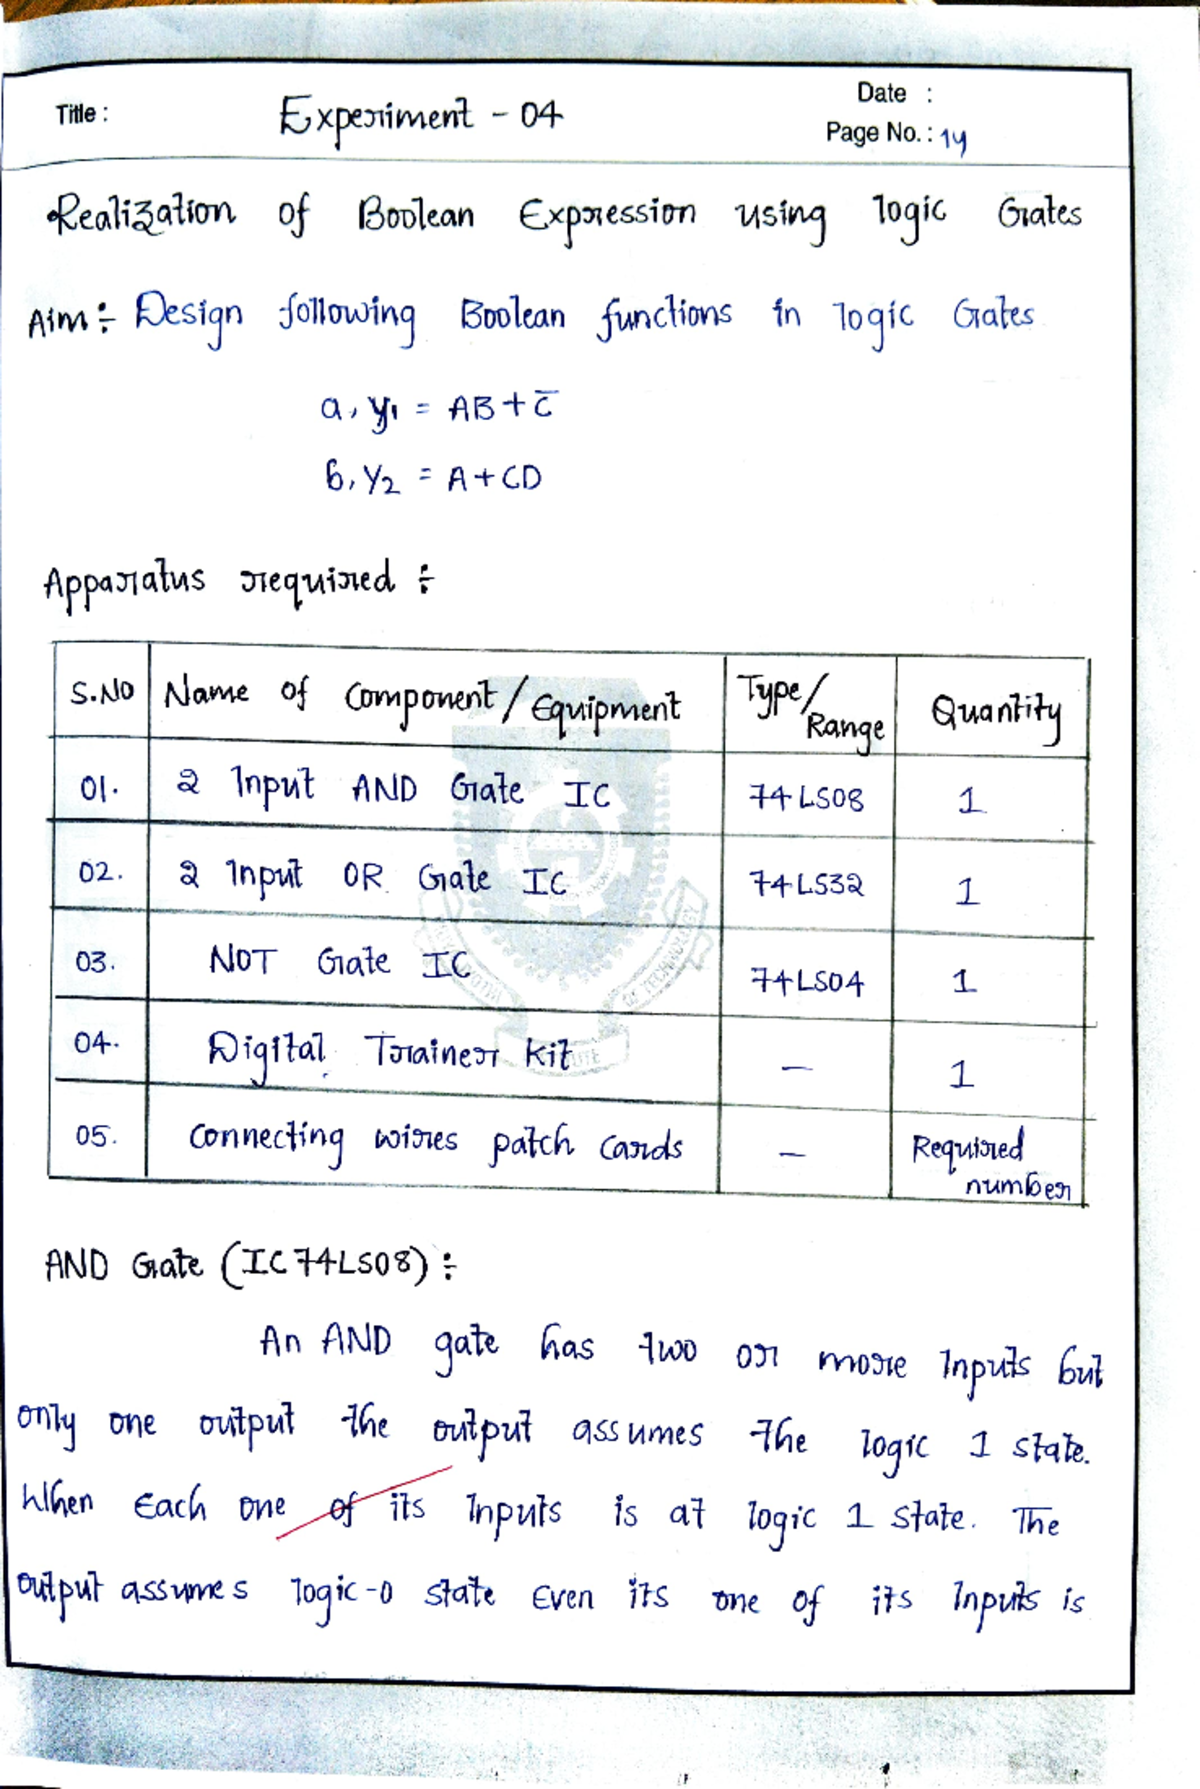 Title : Experiment - 04 Date :
Page No. : 14
Realization of Boolean Expression using logic Gates
Aim :- Design following Boolean functions in logic Gates
a, y1 = AB + C̅
b, Y2 = A + CD
Apparatus required :-
S.NO Name of Component / Equipment Type / Range Quantity
01. 2 Input AND Gate IC 74LS08 1
02. 2 Input OR Gate IC 74LS32 1
03. NOT Gate IC 74LS04 1
04. Digital Trainer Kit - 1
05. Connecting wires patch cards - Required number
AND Gate (IC 74LS08) :-
An AND gate has two or more Inputs but
only one output the output assumes the logic 1 state.
When Each one of its Inputs is at logic 1 state. The
output assumes logic-0 state Even its one of its Inputs is
OF TECHNOLOGY